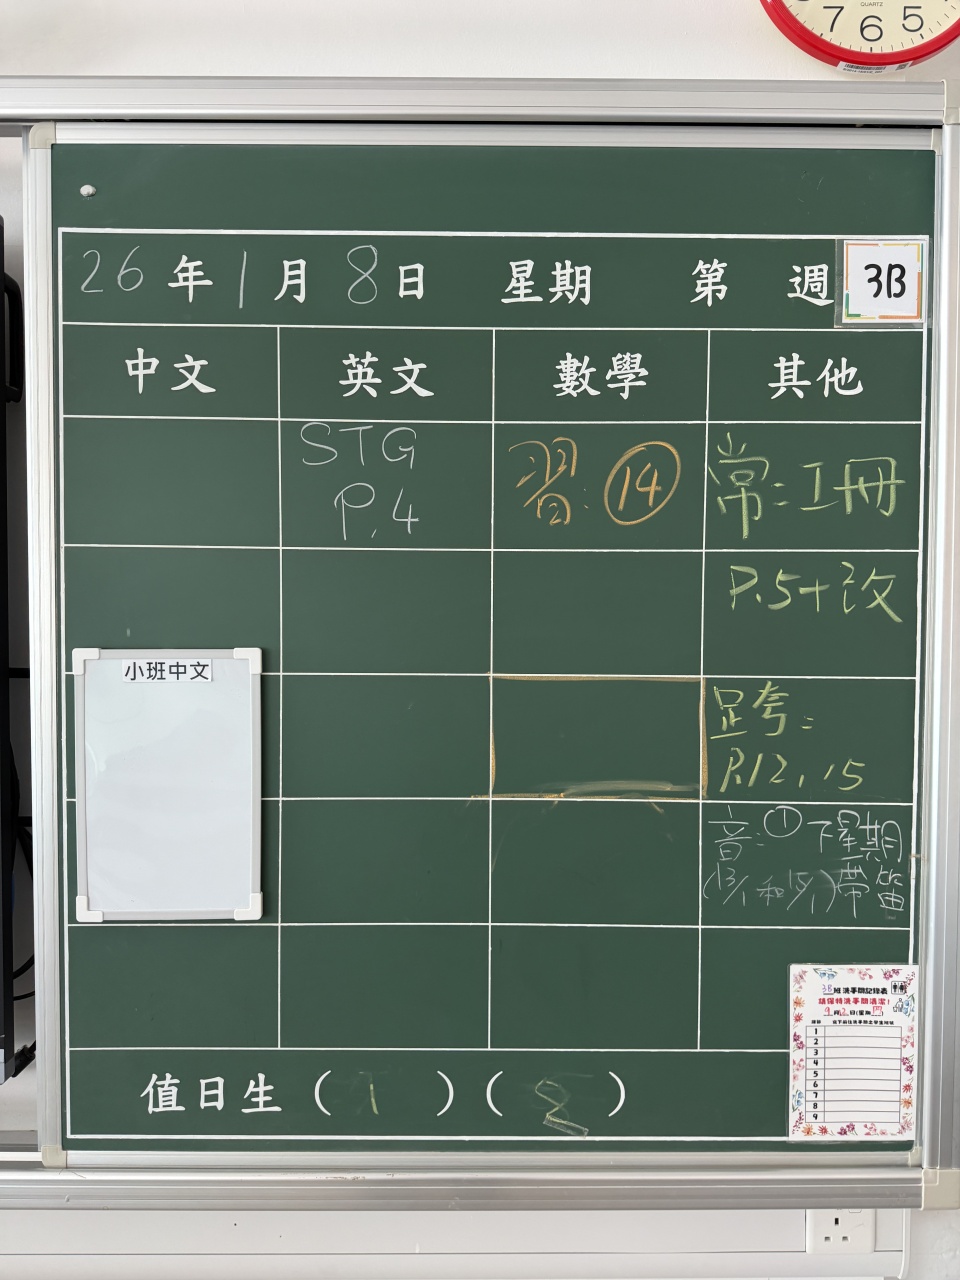 QUARTZ
7 6 5
26年1月8日 星期 第 週 3B
中文 英文 數學 其他
STG
P.4
習:⑭
常:工冊
P.5+改
小班中文
P.12, 15
音:① 下星期
(13/1和15/1)帶笛
3B班洗手間記錄表
請保持洗手間清潔!
1
2
3
4
5
6
7
8
9
值日生( 1 )( 2 )